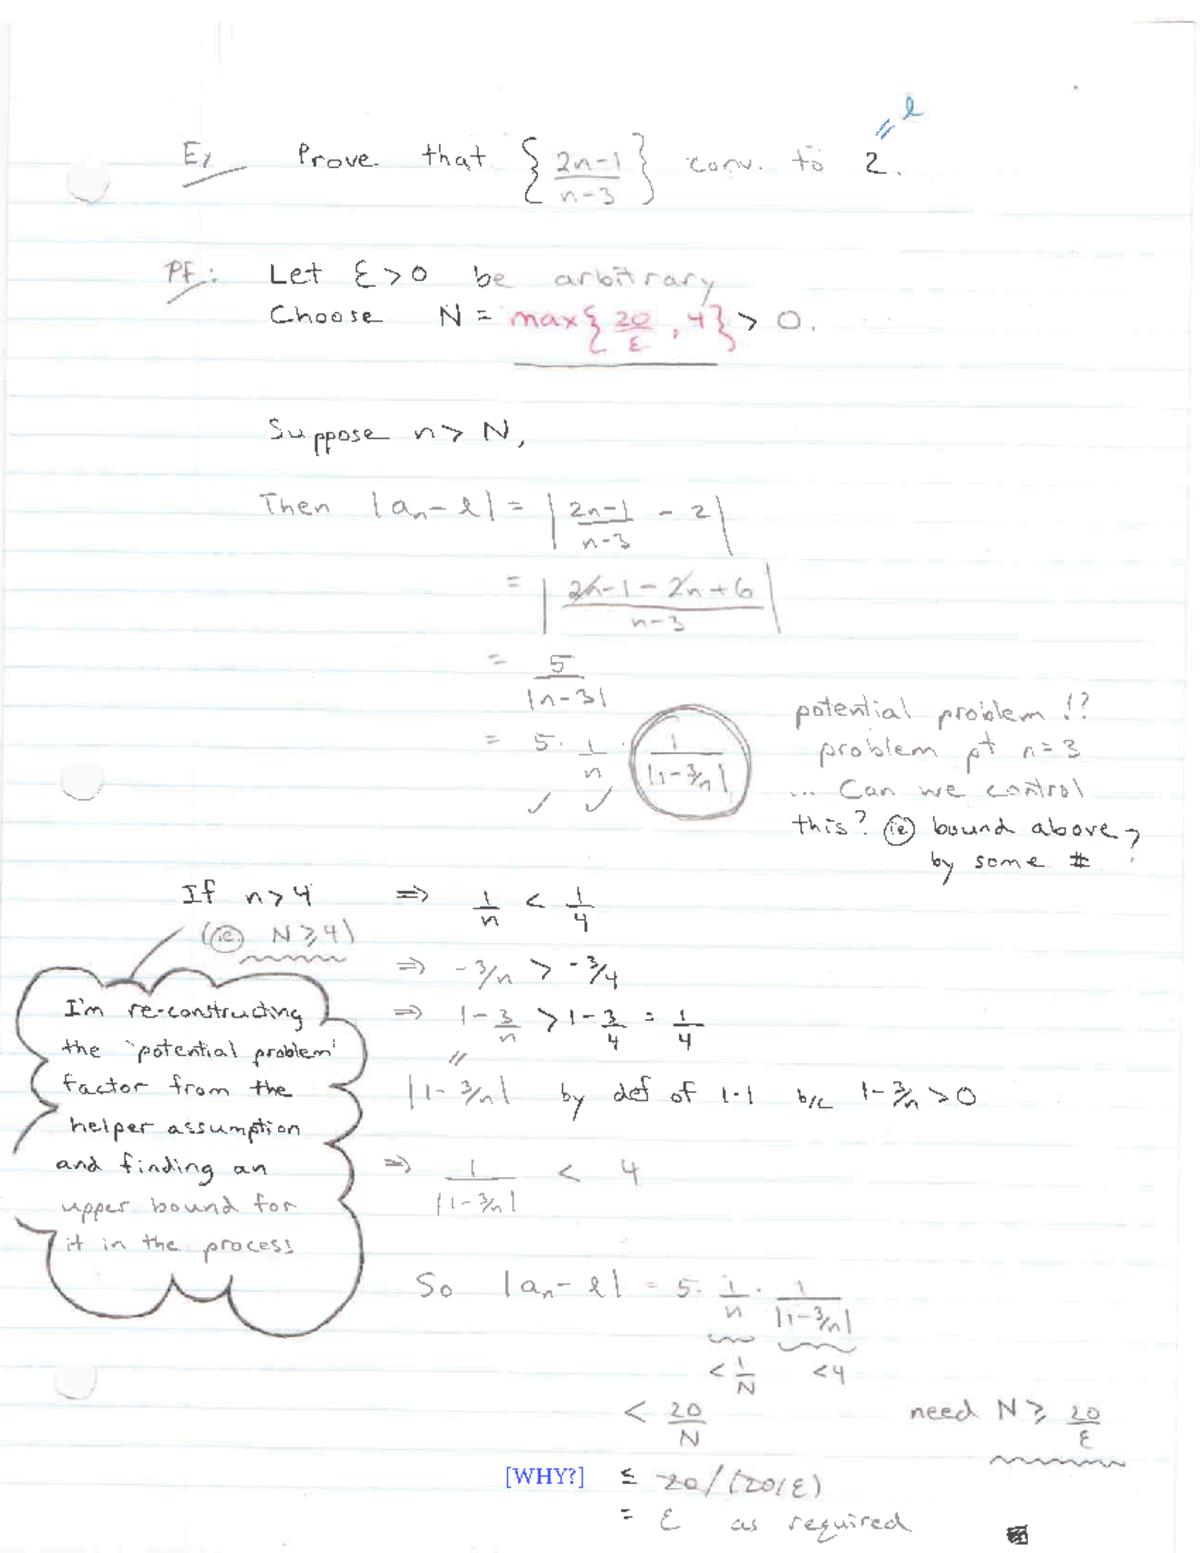 l
Ex Prove that { (2n-1)/(n-3) } conv. to 2.
Pf: Let ε > 0 be arbitrary
Choose N = max{ 20/ε , 4 } > 0.
Suppose n > N,
Then |aₙ - l| = | (2n-1)/(n-3) - 2 |
= | (2n-1-2n+6)/(n-3) |
= 5/|n-3|
= 5 · 1/n · 1/|1-3/n|
✓ ✓
potential problem !?
problem pt n=3
... Can we control
this? (ie) bound above
by some # ?
If n > 4 ⇒ 1/n < 1/4
(ie. N ≥ 4)
⇒ -3/n > -3/4
⇒ 1 - 3/n > 1 - 3/4 = 1/4
|1-3/n| by def of |·| b/c 1-3/n > 0
⇒ 1/|1-3/n| < 4
I'm re-constructing
the "potential problem"
factor from the
helper assumption
and finding an
upper bound for
it in the process
So |aₙ - l| = 5 · 1/n · 1/|1-3/n|
< 1/N < 4
< 20/N need N ≥ 20/ε
[WHY?] ≤ 20/(20/ε)
= ε as required